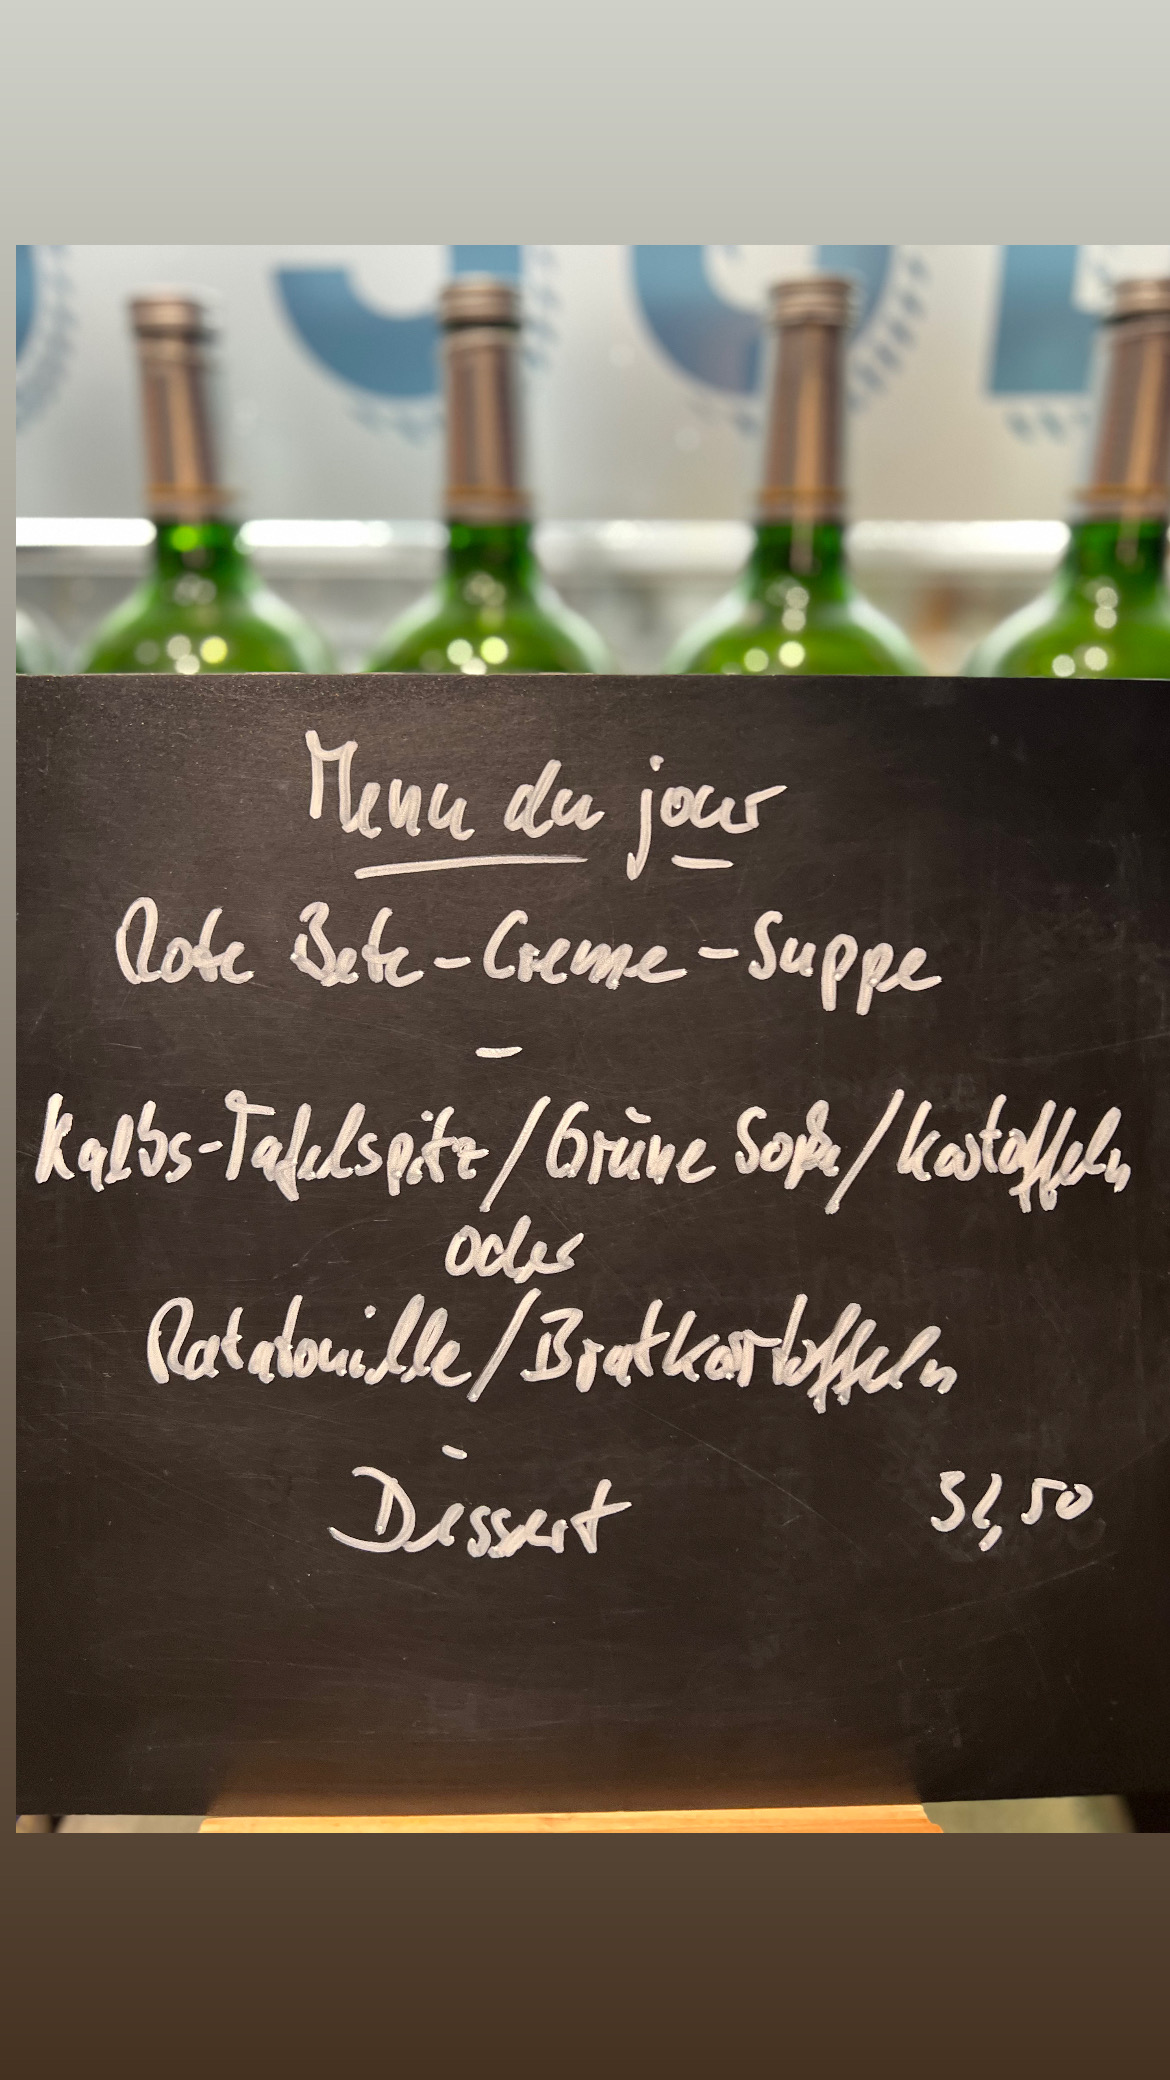 Menu du jour
Rote Bete-Creme-Suppe
-
Kalbs-Tafelspitz/Grüne Soße/Kartoffeln
oder
Ratatouille/Bratkartoffeln
-
Dessert